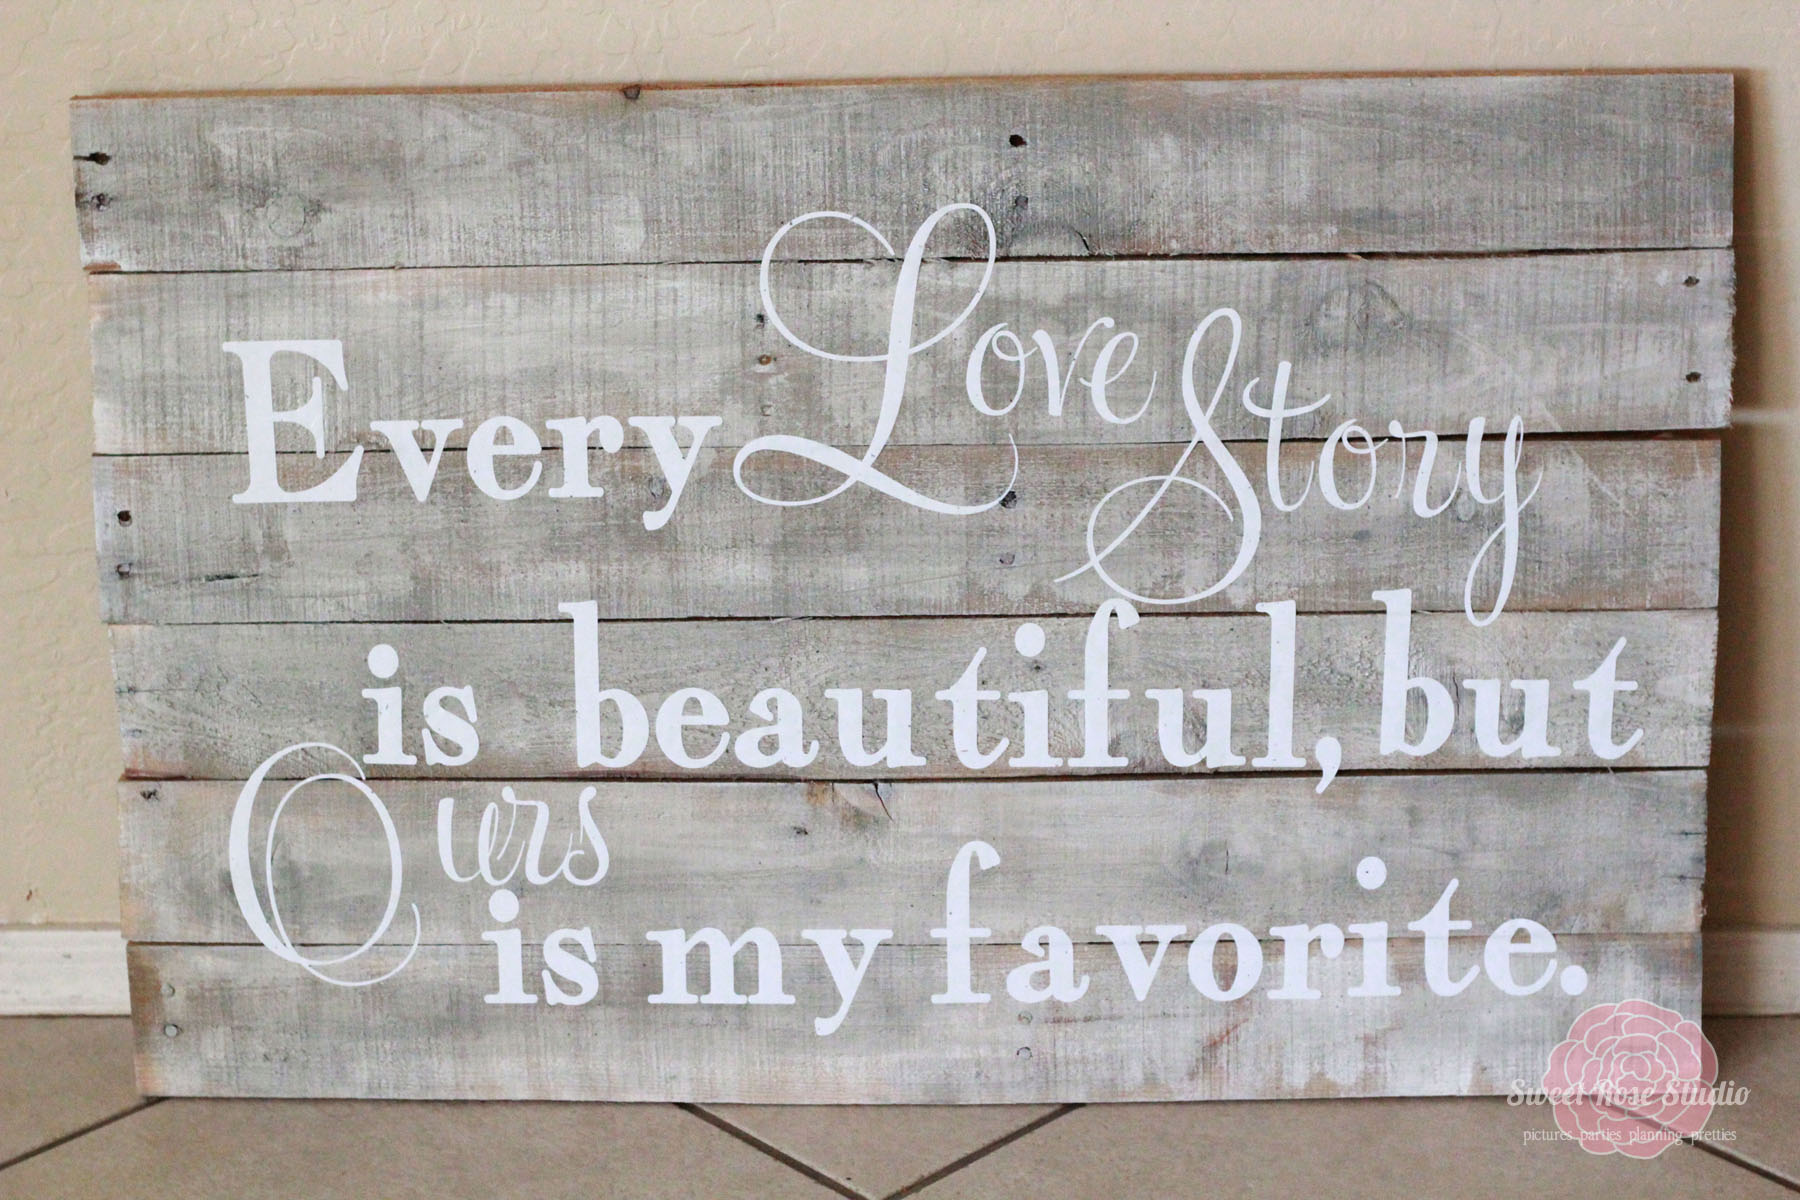 Every Love Story
is beautiful, but
Ours
is my favorite.
Sweet Rose Studio
pictures parties planning pretties